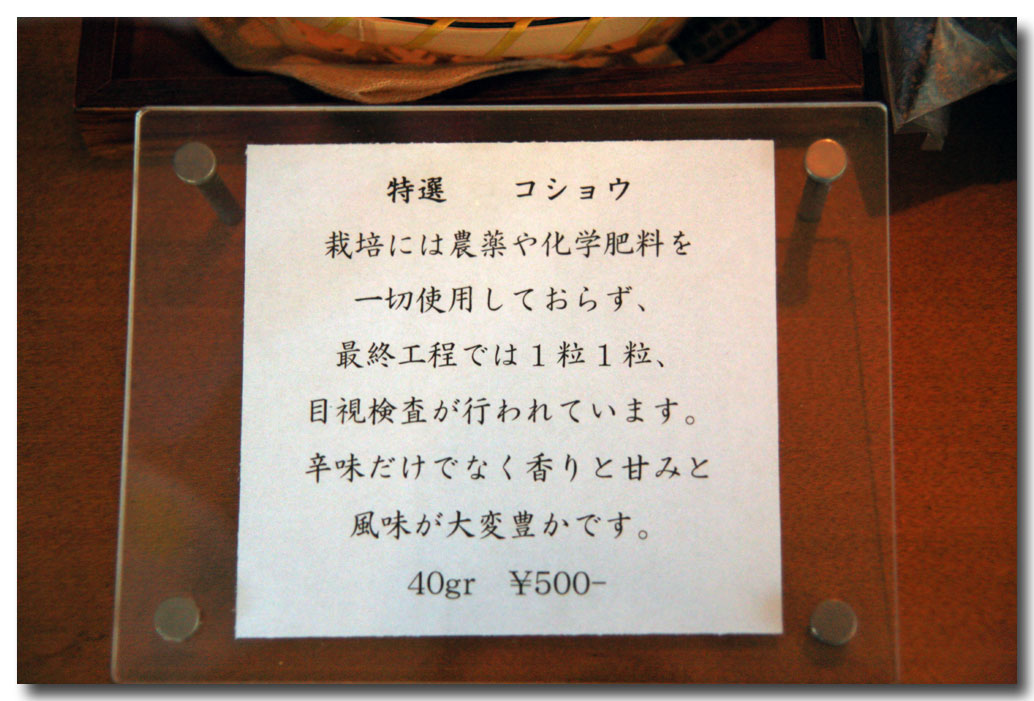 特選　　コショウ
栽培には農薬や化学肥料を
一切使用しておらず、
最終工程では１粒１粒、
目視検査が行われています。
辛味だけでなく香りと甘みと
風味が大変豊かです。
40gr　¥500-